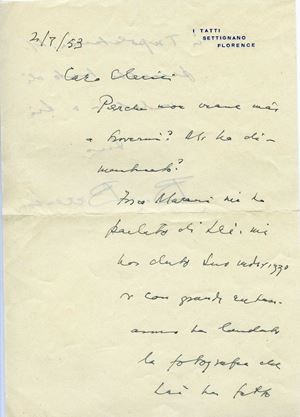 I TATTI
SETTIGNANO
FLORENCE
2/7/53
Caro Clerici
Perché non viene mai
a trovarmi? Mi ha di-
menticato?
Fosco Maraini mi ha
parlato di Lei, mi
ha
e con grande entusi-
asmo ha lodato
la fotografia che
Lei ha fatto